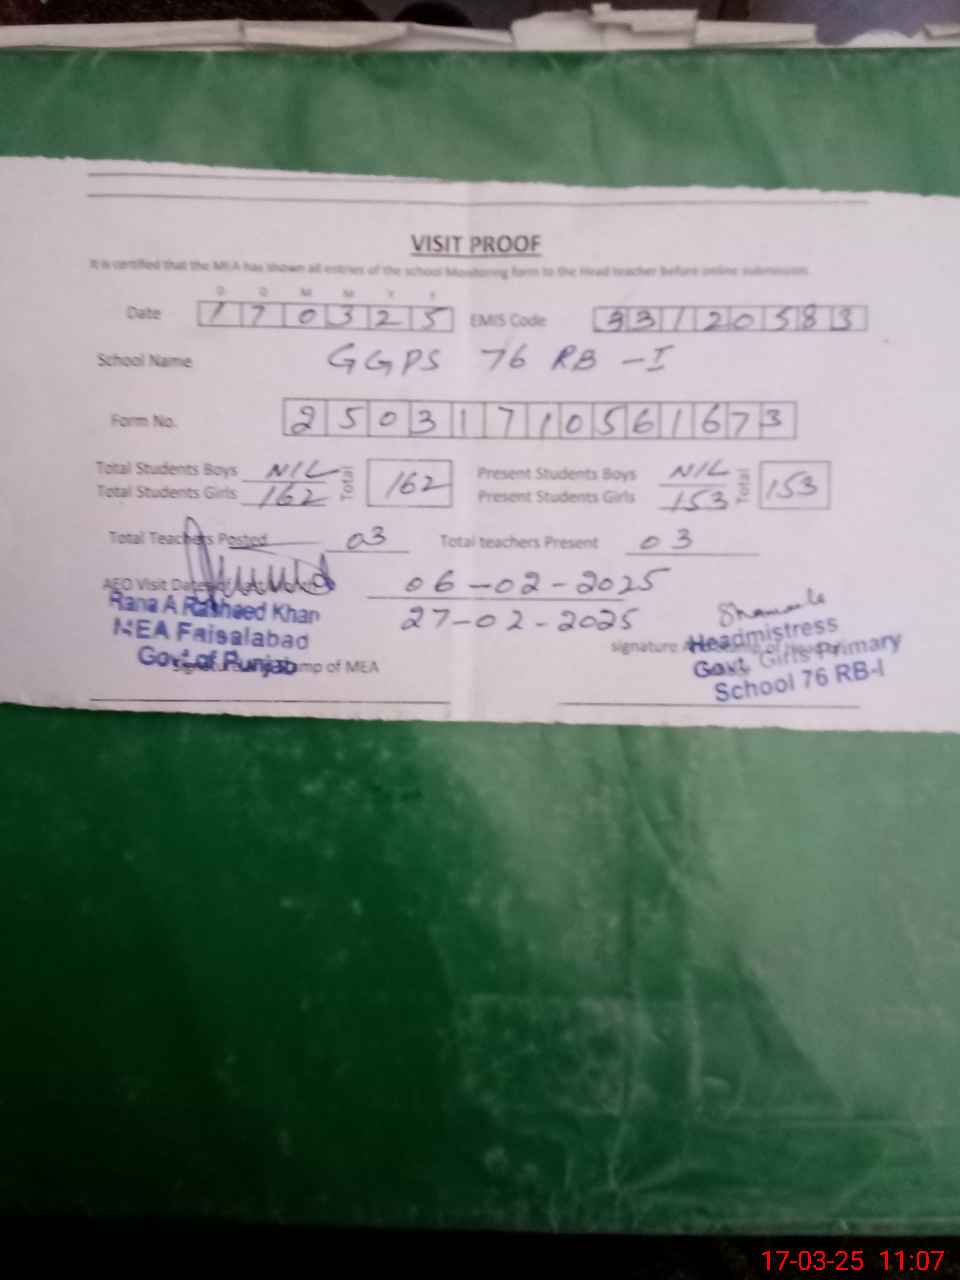 VISIT PROOF
It is certified that the MEA has shown all entries of the school Monitoring form to the Head teacher before online submission.
D D M M Y Y
Date 1 7 0 3 2 5 EMIS Code 3 3 1 2 0 5 8 3
School Name GGPS 76 RB -I
Form No. 2 5 0 3 1 7 1 0 5 6 1 6 7 3
Total Students Boys NIL Total 162 Present Students Boys NIL Total 153
Total Students Girls 162 Present Students Girls 153
Total Teachers Posted 03 Total teachers Present 03
AEO Visit Dates of Last Month 06-02-2025
27-02-2025
Rana A Rasheed Khan
MEA Faisalabad
Govt of Punjab
Stamp of MEA
signature
Headmistress
Govt Girls Primary
School 76 RB-I
17-03-25 11:07